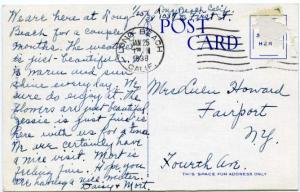 We are here at Long
Beach for a couple
months. The weather
is just beautiful
is warm and sun
shine every day. We
sure do enjoy it. The
flowers are just beautiful
Jessie is just fine
here for a time
We are certainly have
a nice visit. Mort is
feeling fine. Hope you
are having a nice winter.
Daisy & Mort.
Long Beach Calif.
1039 E. First St.
LONG BEACH
JAN 25
1938
CALIF.
POST
CARD
Mrs Culn Howard
Fairport
N.Y.
Fourth Ave.
THIS SPACE FOR ADDRESS ONLY